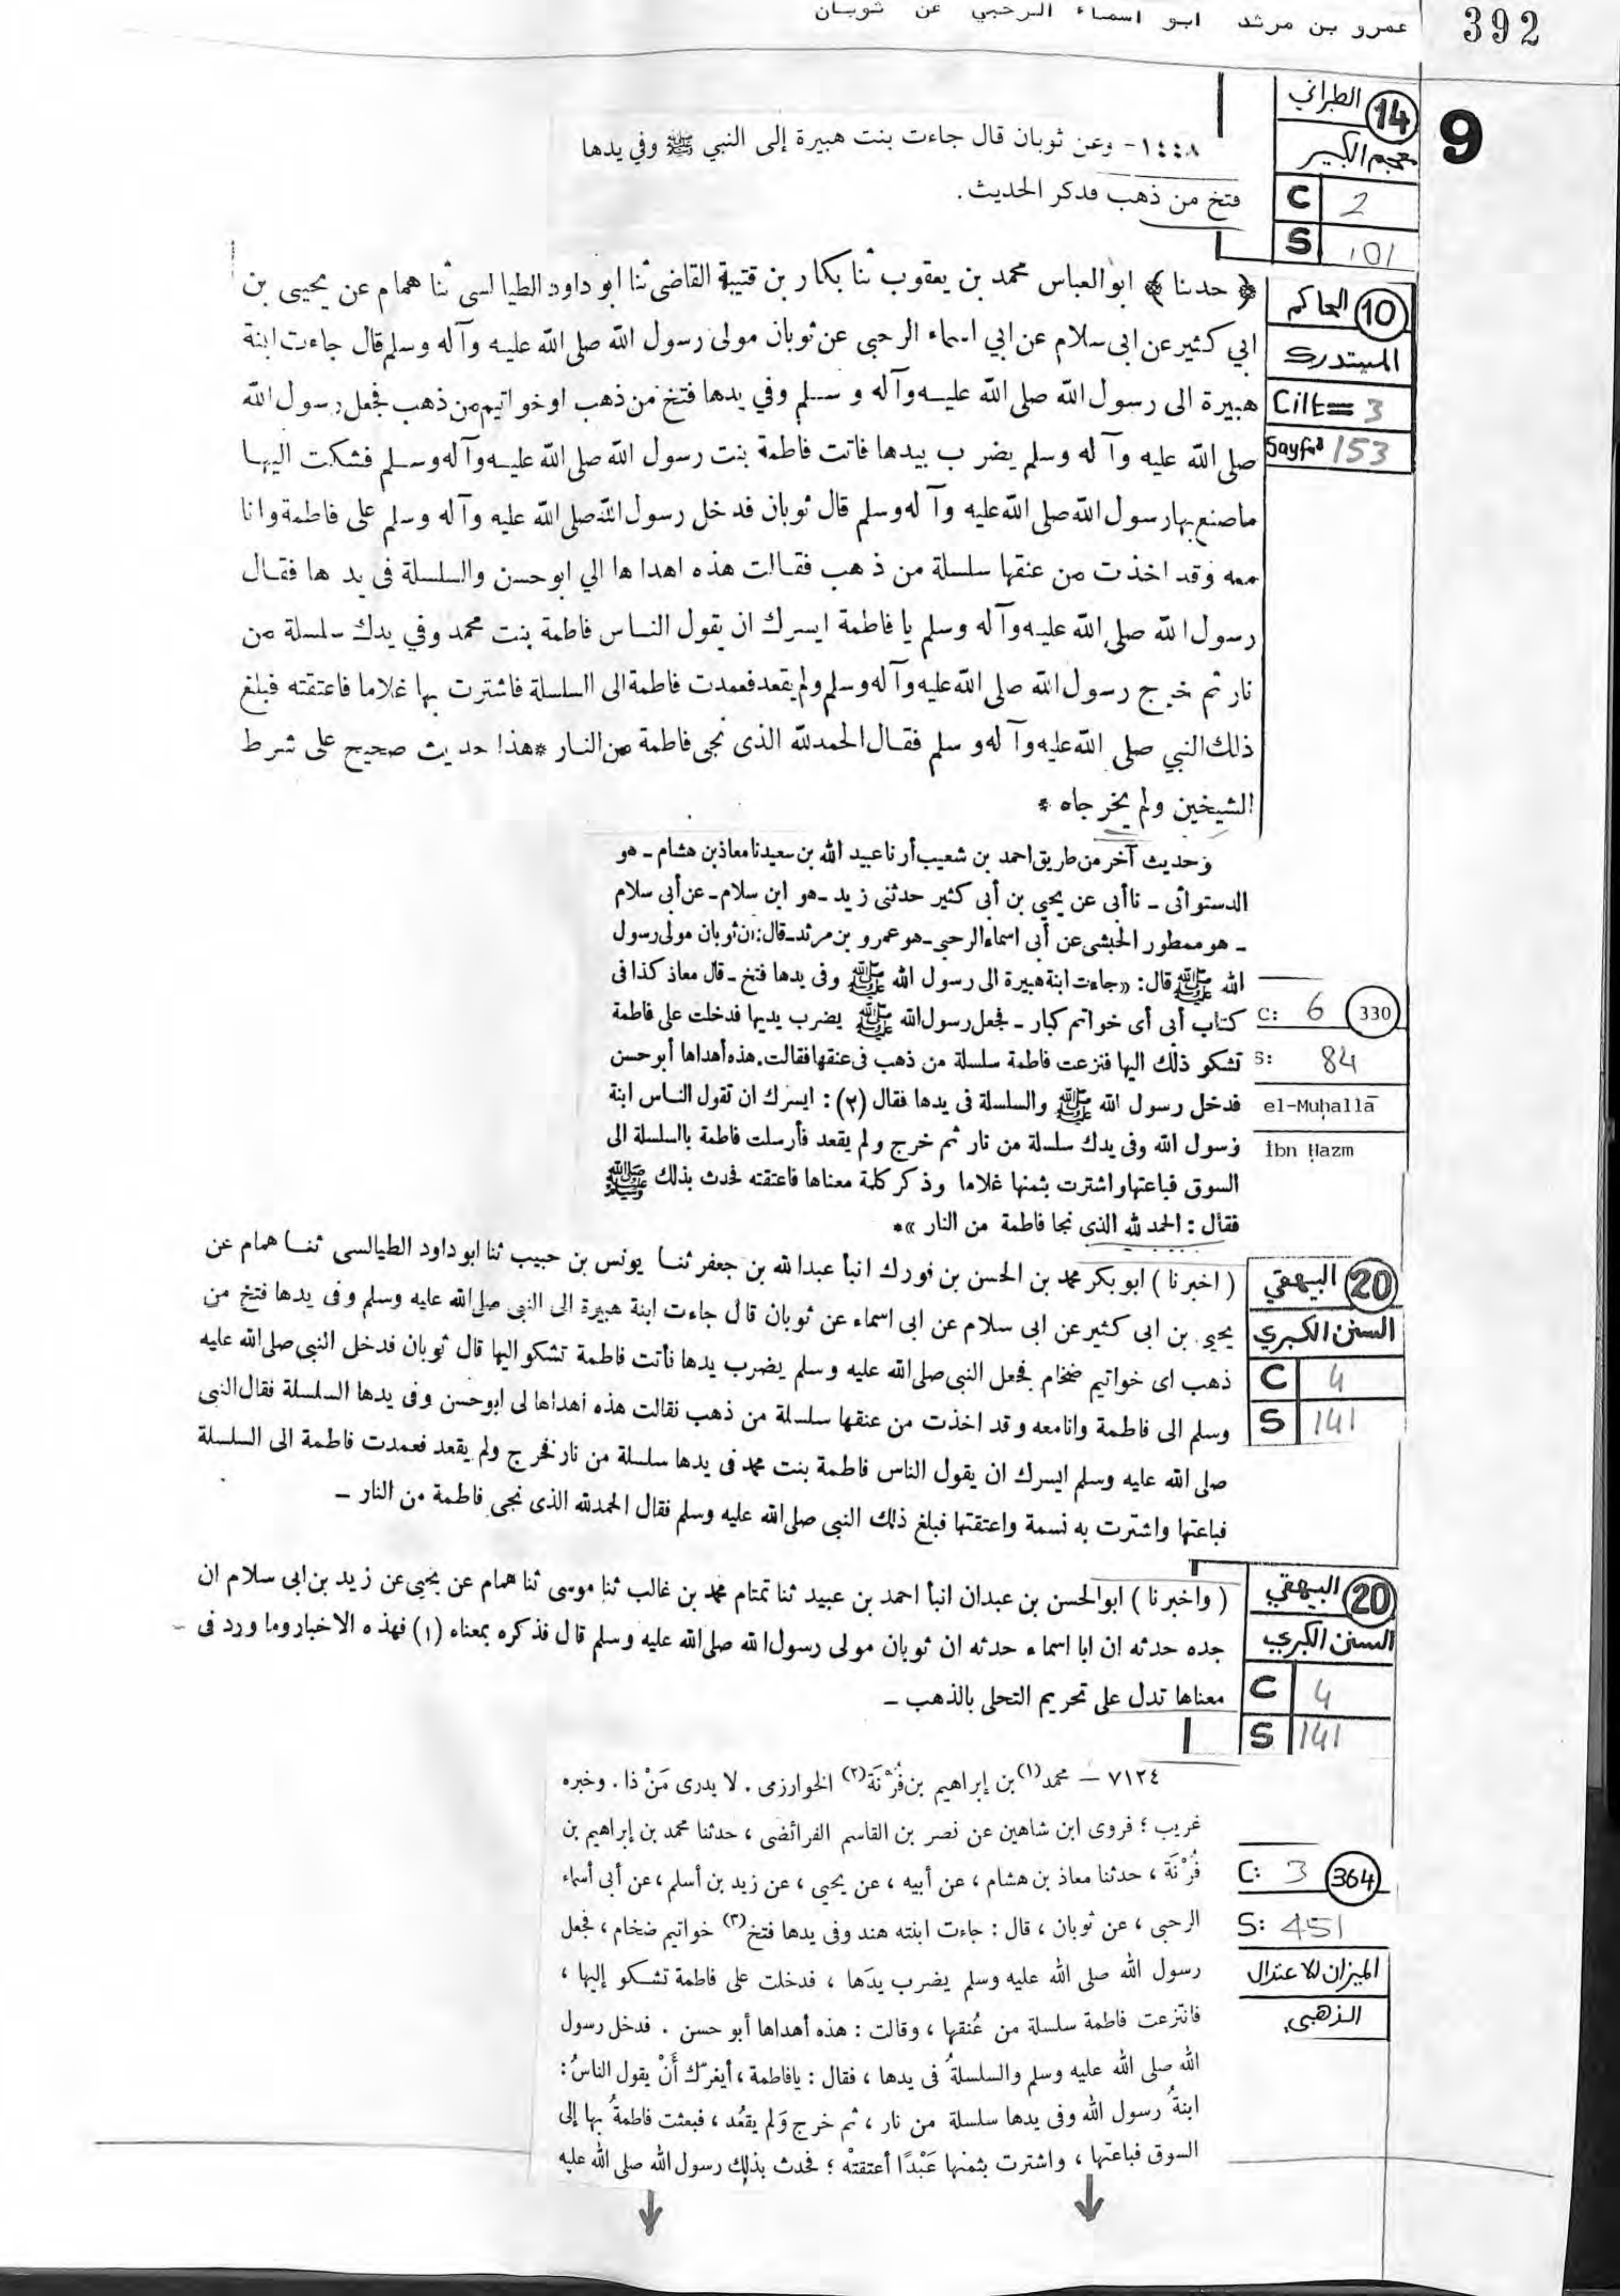 392
عمرو بن مرثد ابو اسماء الرحبي عن ثوبان
9
14 الطبراني
معجم الكبير
C 2
S 101
١٤٤٨- وعن ثوبان قال جاءت بنت هبيرة إلى النبي ﷺ وفي يدها
فتخ من ذهب فدكر الحديث .
10 الحاكم
المستدرك
Cilt= 3
Sayfa 153
﴿ حدثنا ﴾ ابو العباس محمد بن يعقوب ثنا بكار بن قتيبة القاضى ثنا ابو داود الطيالسى ثنا همام عن يحيى بن
ابي كثير عن ابى سلام عن ابي اسماء الرحبى عن ثوبان مولى رسول الله صلى الله عليه وآله وسلم قال جاءت ابنة
هبيرة الى رسول الله صلى الله عليه وآله وسلم وفي يدها فتخ من ذهب او خواتيم من ذهب فجعل رسول الله
صلى الله عليه وآله وسلم يضرب بيدها فاتت فاطمة بنت رسول الله صلى الله عليه وآله وسلم فشكت اليها
ما صنع بها رسول الله صلى الله عليه وآله وسلم قال ثوبان فدخل رسول الله صلى الله عليه وآله وسلم على فاطمة وانا
معه وقد اخذت من عنقها سلسلة من ذهب فقالت هذه اهداها الي ابو حسن والسلسلة فى يدها فقال
رسول الله صلى الله عليه وآله وسلم يا فاطمة ايسرك ان يقول الناس فاطمة بنت محمد وفي يدك سلسلة من
نار ثم خرج رسول الله صلى الله عليه وآله وسلم ولم يقعد فعمدت فاطمة الى السلسلة فاشترت بها غلاما فاعتقته فبلغ
ذلك النبي صلى الله عليه وآله وسلم فقال الحمد لله الذى نجى فاطمة من النار * هذا حديث صحيح على شرط
الشيخين ولم يخرجاه *
وحديث آخر من طريق احمد بن شعيب أرنا عبيد الله بن سعيد نا معاذ بن هشام ـ هو
الدستوائى ـ نا أبى عن يحيى بن أبى كثير حدثنى زيد ـ هو ابن سلام ـ عن أبى سلام
ـ هو ممطور الحبشى عن أبى اسماء الرحبى ـ هو عمرو بن مرثد ـ قال: ان ثوبان مولى رسول
الله ﷺ قال: «جاءت ابنة هبيرة الى رسول الله ﷺ وفى يدها فتخ ـ قال معاذ كذا فى
كتاب أبى أى خواتم كبار ـ فجعل رسول الله ﷺ يضرب يديها فدخلت على فاطمة
تشكو ذلك اليها فنزعت فاطمة سلسلة من ذهب فى عنقها فقالت. هذه أهداها أبو حسن
فدخل رسول الله ﷺ والسلسلة فى يدها فقال (٢) : ايسرك ان تقول الناس ابنة
رسول الله وفى يدك سلسلة من نار ثم خرج ولم يقعد فأرسلت فاطمة بالسلسلة الى
السوق فباعتها واشترت بثمنها غلاما وذكر كلمة معناها فاعتقته فحدث بذلك ﷺ
فقال : الحمد لله الذى نجا فاطمة من النار »*
C: 6 330
S: 84
el-Muḥallā
İbn Ḥazm
20 البيهقي
السنن الكبرى
C 4
S 141
( اخبرنا ) ابو بكر محمد بن الحسن بن فورك انبأ عبدالله بن جعفر ثنا يونس بن حبيب ثنا ابو داود الطيالسى ثنا همام عن
يحيى بن ابى كثير عن ابى سلام عن ابى اسماء عن ثوبان قال جاءت ابنة هبيرة الى النبى صلى الله عليه وسلم وفى يدها فتخ من
ذهب اى خواتيم ضخام فجعل النبى صلى الله عليه وسلم يضرب يدها فأتت فاطمة تشكو اليها قال ثوبان فدخل النبى صلى الله عليه
وسلم الى فاطمة وانا معه وقد اخذت من عنقها سلسلة من ذهب فقالت هذه أهداها لى ابو حسن وفى يدها السلسلة فقال النبى
صلى الله عليه وسلم ايسرك ان يقول الناس فاطمة بنت محمد فى يدها سلسلة من نار فخرج ولم يقعد فعمدت فاطمة الى السلسلة
فباعتها واشترت به نسمة واعتقتها فبلغ ذلك النبى صلى الله عليه وسلم فقال الحمد لله الذى نجى فاطمة من النار ـ
20 البيهقي
السنن الكبرى
C 4
S 141
( واخبرنا ) ابو الحسن بن عبدان انبأ احمد بن عبيد ثنا تمتام محمد بن غالب ثنا موسى ثنا همام عن يحيى عن زيد بن ابى سلام ان
جده حدثه ان ابا اسماء حدثه ان ثوبان مولى رسول الله صلى الله عليه وسلم قال فذكره بمعناه (١) فهذه الاخبار وما ورد فى
معناها تدل على تحريم التحلى بالذهب ـ
٧١٢٤ — محمد(١) بن إبراهيم بن فُرْنَة(٢) الخوارزمى . لا يدرى مَنْ ذا . وخبره
غريب ؛ فروى ابن شاهين عن نصر بن القاسم الفرائضى ، حدثنا محمد بن إبراهيم بن
فُرْنَة ، حدثنا معاذ بن هشام ، عن أبيه ، عن يحيى ، عن زيد بن أسلم ، عن أبى أسماء
الرحبى ، عن ثوبان ، قال : جاءت ابنته هند وفى يدها فتخ(٣) خواتيم ضخام ، فجعل
رسول الله صلى الله عليه وسلم يضرب يدَها ، فدخلت على فاطمة تشكو إليها ،
فانتزعت فاطمة سلسلة من عُنقها ، وقالت : هذه أهداها أبو حسن . فدخل رسول
الله صلى الله عليه وسلم والسلسلةُ فى يدها ، فقال : يافاطمة ، أيغرّك أَنْ يقول الناسُ :
ابنةُ رسول الله وفى يدها سلسلة من نار ، ثم خرج وَلم يقعُد ، فبعثت فاطمةُ بها إلى
السوق فباعتها ، واشترت بثمنها عَبْدًا أعتقتْه ؛ فحدث بذلك رسول الله صلى الله عليه
C: 3 364
S: 451
الميزان للاعتدال
الذهبي